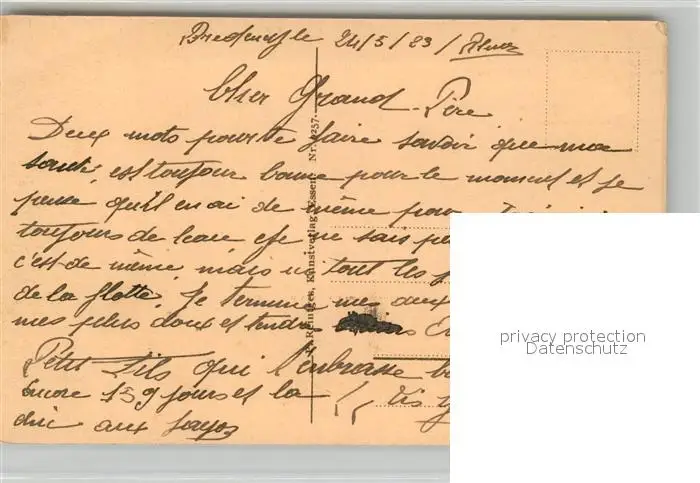 le 24/5/23
Cher Grand-Père
Deux mots pour te faire savoir que ma
santé est toujour bonne pour le moment et je
pense qu'il en ai de même pour
toujours de l'eau je ne sais
c'est de même mais ici tout les
de la flotte. Je termine mes deux
mes plus doux et tendre
Petit Fils qui t'embrasse
Encore 159 jours et la
dire aux
Reintges, Kunstverlag, Essen. Nr. 257.
privacy protection
Datenschutz